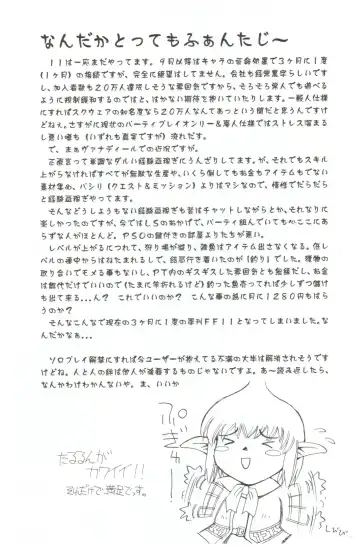 なんだかとってもふぁんたじ～
１１は一応まだやってます。９月以降はキャラの延命処置で３ヶ月に１度
(１ヶ月)の接続ですが、完全に破籍はしてません。会社も経営難辛らしいです
し、加入者数も２０万人達成しそうな雰囲気ですから、そろそろ常人でも遊べる
ように規制緩和するのではと、はかない期待を抱いていたりします。一般人仕様
にすればスクウェアの知名度なら２０万人なんてあっという間だと思うんですけ
どねぇ。さすがに現状のパーティプレイオンリー＆廃人仕様ではストレス溜まる
し思い遣も(いずれも真実ですが)流れだす。
で、まぁヴァナディールの近況ですが。
正直言って単調なダルい経験値稼ぎにうんざりしてます。が、それでもスキル
上がらなければすべてが無駄な生産や、いくら倒してもお金もアイテムもでない
素材集め、パシリ(クエスト＆ミッション)よりはマシなので、惰性でだらだら
と経験値稼ぎやってます。
そんなどうしょうもない経験値稼ぎも昔はチャットしながらとか、それなりに
楽しかったのですが、今ではＬＳのおかげで、パーティ組んでいても心ここにあ
らずな人がほとんど。ＰＳＯの鍵付きの部屋よりたちが悪い。
レベルが上がるにつれて、狩り場が減り、雑魚はアイテム出さなくなる。低レ
ベルの連中からはねたまれるしで、結局行き着いたのが《釣り》でした。獲物の
取り合いでモメる事もないし、ＰＴ内のギスギスした雰囲気とも無縁だし、お金
は餌代だけでいいので(たまに竿折れるけど)釣った魚売ってれば少しずつ儲け
も出て来る...ん？　これでいいのか？　こんな事の為に月に１２８０円もはら
うのか？
そんなこんなで現在の３ヶ月に１度の季刊ＦＦ１１となってしまいました。な
んだかなぁ...
ソロプレイ解禁にすれば今ユーザーが抱えてる不満の大半は解消されそうです
けどね。人と人の絆は他人が強要するものじゃないですよ。あ～読み返したら、
なんかわけわかんないや。ま、いいか
ぷぎ
たるるんが
カワイイ！！
それだけで満足です。